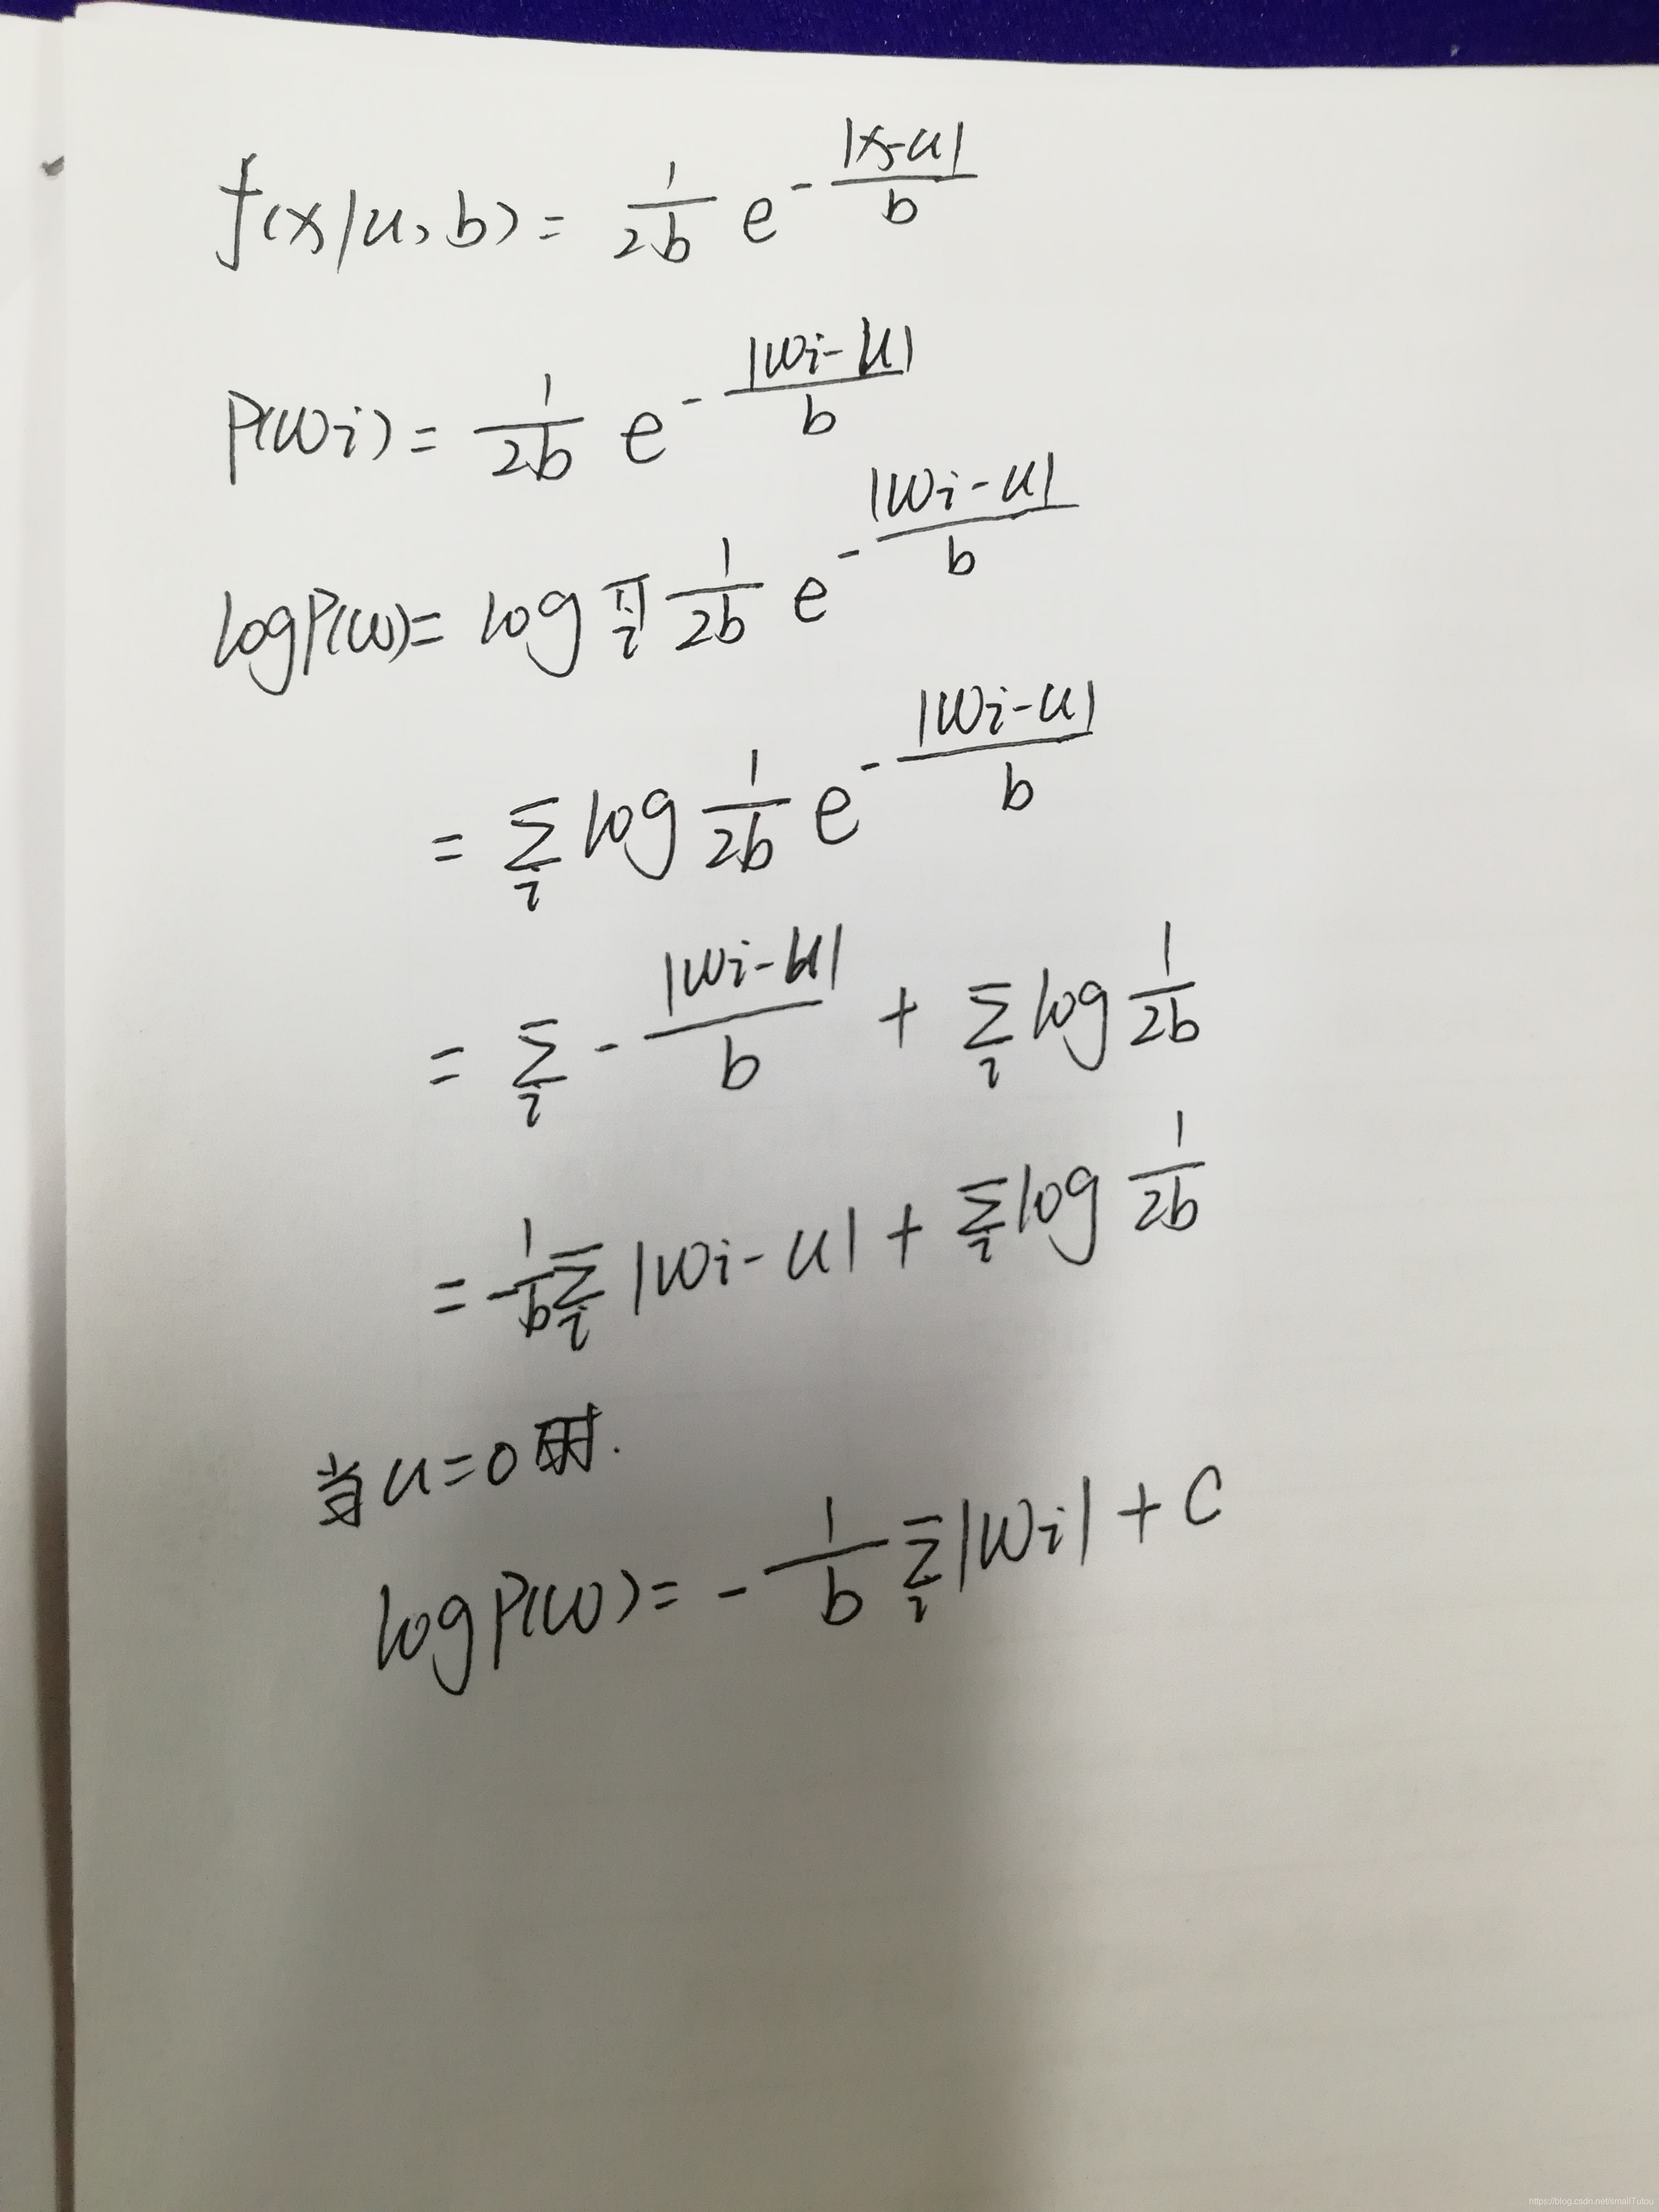 f(x|u,b) = \frac{1}{2b} e^{-\frac{|x-u|}{b}}
P(wi) = \frac{1}{2b} e^{-\frac{|wi-u|}{b}}
logP(w) = log \prod_i \frac{1}{2b} e^{-\frac{|wi-u|}{b}}
= \sum_i log \frac{1}{2b} e^{-\frac{|wi-u|}{b}}
= \sum_i -\frac{|wi-u|}{b} + \sum_i log \frac{1}{2b}
= -\frac{1}{b} \sum_i |wi-u| + \sum_i log \frac{1}{2b}
当u=0时.
logP(w) = -\frac{1}{b} \sum_i |wi| + C
https://blog.csdn.net/smallTutou